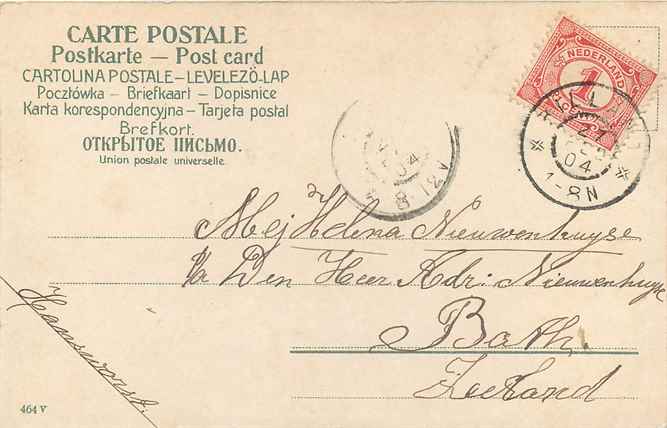 CARTE POSTALE
Postkarte — Post card
CARTOLINA POSTALE – LEVELEZÖ-LAP
Pocztówka — Briefkaart — Dopisnice
Karta korespondencyjna — Tarjeta postal
Brefkort.
ОТКРЫТОЕ ПИСЬМО.
Union postale universelle.
NEDERLAND
1
04
1-8N
04
8-12V
Mej Helena Nieuwenhuyse
p/a Den Heer Adr: Nieuwenhuyse
Bath.
Zeeland
Hansweert.
464 V